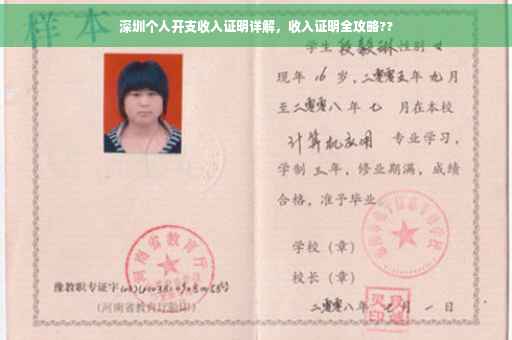 深圳个人开支收入证明详解，收入证明全攻略??
样本
学生段毅琳性别女
现年16岁，二零零五年九月
至二零零八年七月在本校
计算机应用 专业学习，
学制三年，修业期满，成绩
合格，准予毕业。
学校（章）
校长（章）
二零零八年七月一日
河南省教育厅
豫教职专证字
(河南省教育厅验印)